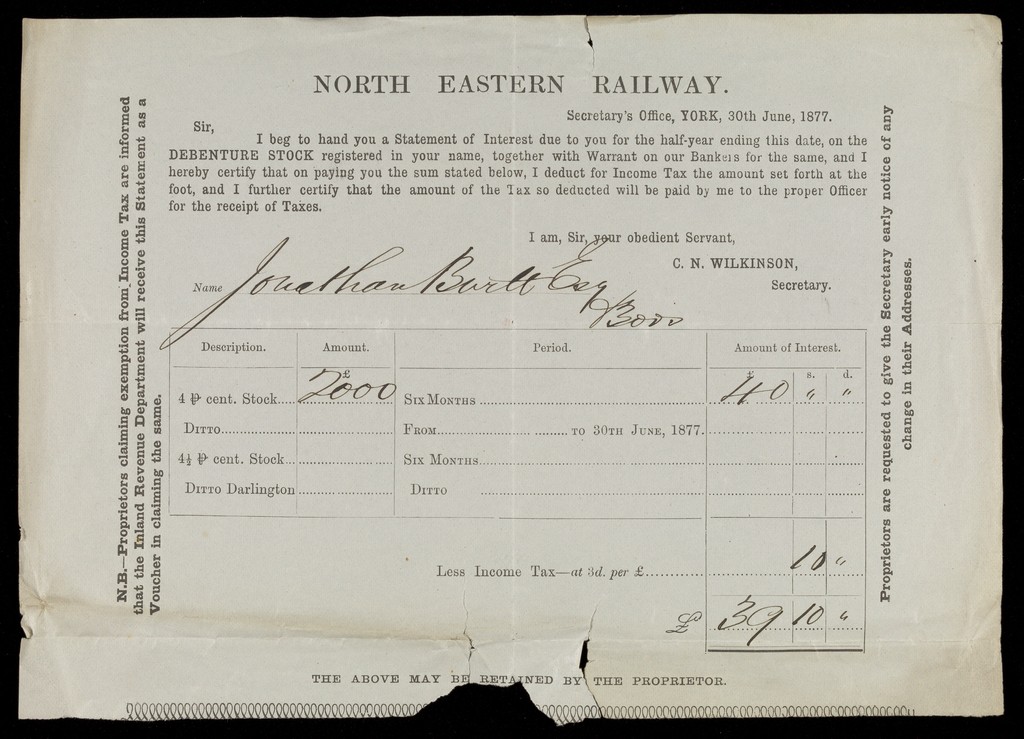 NORTH EASTERN RAILWAY.
Secretary's Office, YORK, 30th June, 1877.
Sir,
I beg to hand you a Statement of Interest due to you for the half-year ending this date, on the
DEBENTURE STOCK registered in your name, together with Warrant on our Bankers for the same, and I
hereby certify that on paying you the sum stated below, I deduct for Income Tax the amount set forth at the
foot, and I further certify that the amount of the Tax so deducted will be paid by me to the proper Officer
for the receipt of Taxes.
I am, Sir, your obedient Servant,
C. N. WILKINSON,
Secretary.
Name Jonathan Burtt Esq
Description. Amount. Period. Amount of Interest.
£ £ s. d.
4 ⅌ cent. Stock.... 2000 SIX MONTHS 40 " "
DITTO FROM TO 30TH JUNE, 1877.
4½ ⅌ cent. Stock... SIX MONTHS
DITTO Darlington DITTO
Less Income Tax—at 3d. per £ 10 "
£ 39 10 "
THE ABOVE MAY BE RETAINED BY THE PROPRIETOR.
N.B.—Proprietors claiming exemption from Income Tax are informed
that the Inland Revenue Department will receive this Statement as a
Voucher in claiming the same.
Proprietors are requested to give the Secretary early notice of any
change in their Addresses.